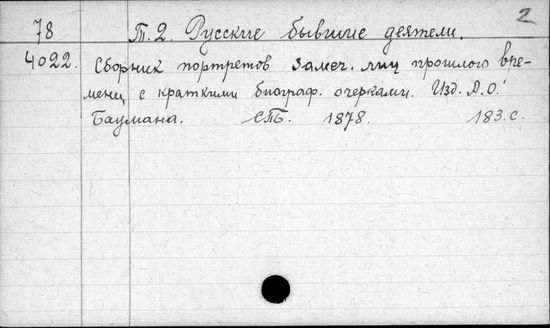 2
78 Т.2. Русские бывшие деятели.
4022. Сборник портретов замеч. лиц прошлого вре-
мени с краткими биограф. очерками. Изд. А.О.
Баумана. СПБ. 1878. 183.с.